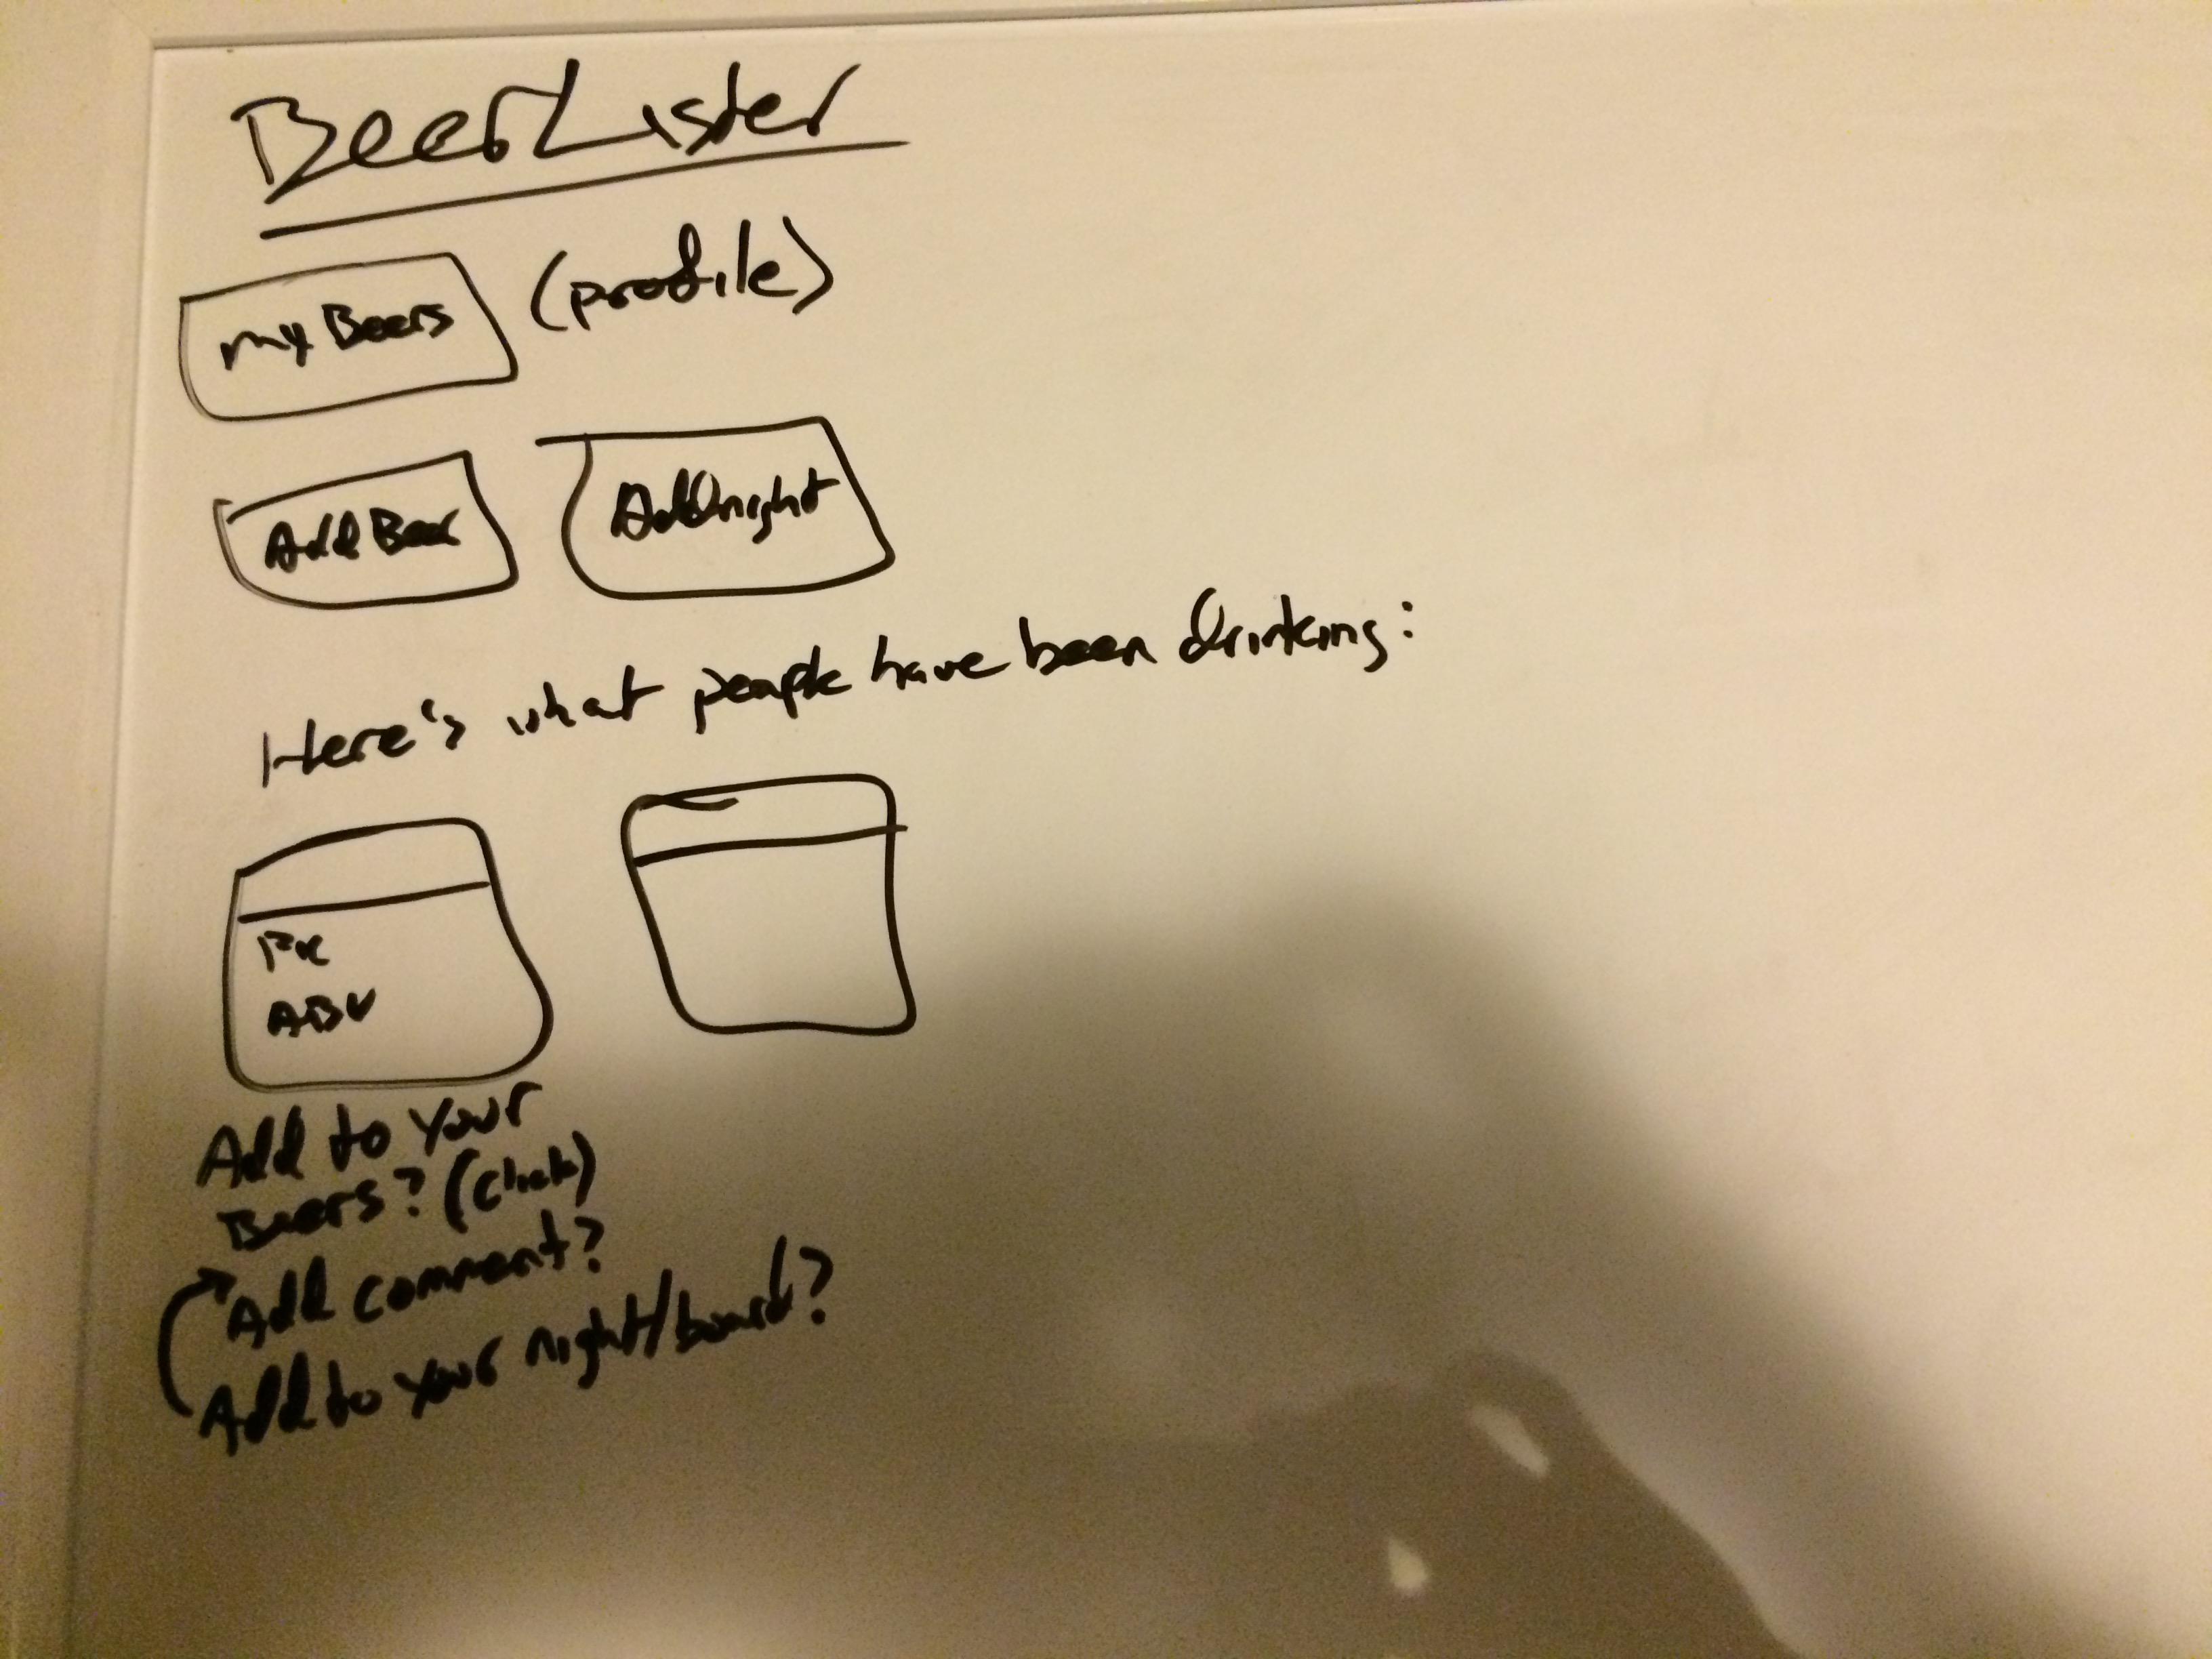 BeerLister
My Beers (profile)
Add Beer Add night
Here's what people have been drinking:
Pic
ABV
Add to your
Beers? (Click)
Add comment?
Add to your night/board?